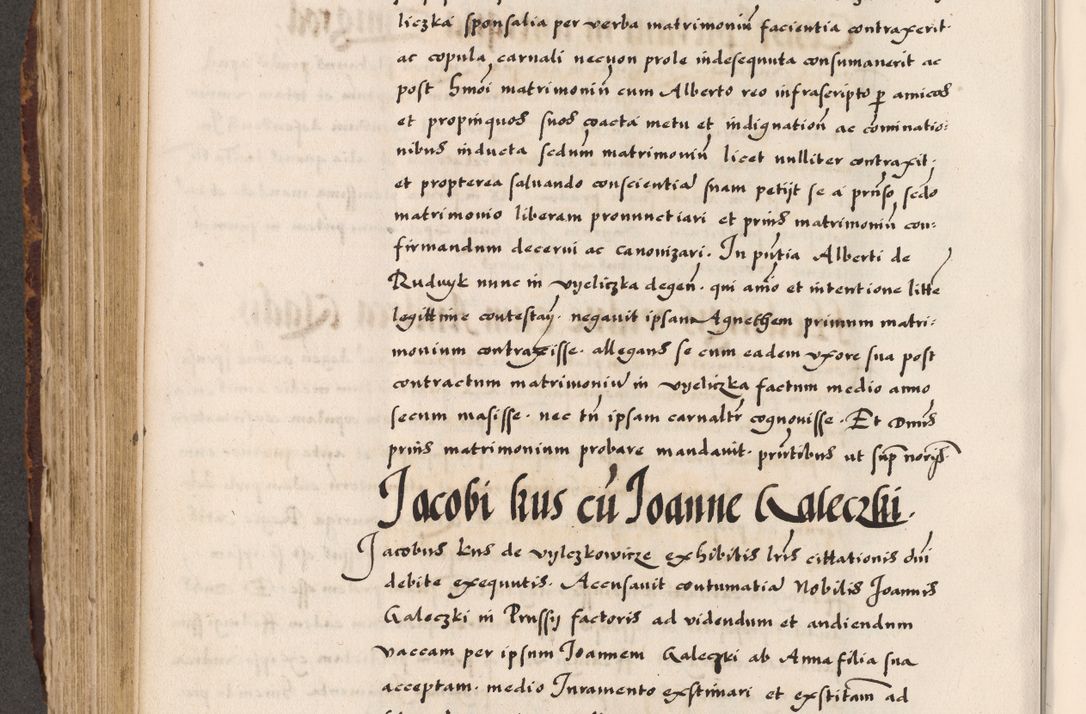 liczka sponsalia per verba matrimoniū facientia contraxerit
ac copula carnali necnon prole indesequuta consumaverit ac
post hmoi matrimoniū cum Alberto reo infrascripto p amicos
et propinquos suos coacta metu et indignatioñ ac cominatio:
nibus inducta scdum matrimoniū licet nulliter contraxit.
et propterea salvando conscientiā suam petijt se a pñso scdo
matrimonio liberam pronunctiari et prius matrimoniū con:
firmandum decerni ac canonizari. In pñtia Alberti de
Rudwyk nunc in vyeliczka degeñ. qui aīo et intentione litte
legittime contestañ. negavit ipsam Agnethem primum matri:
monium contraxisse. allegans se cum eadem vxore sua post
contractum matrimoniū in vyeliczka factum medio anno
secum masisse. nec tñ ipsam carnaltr cognovisse. Et Dnus
prius matrimonium probare mandavit. pñtibus ut sup noris
Jacobi kus cū Joanne Galeczki.
Jacobus kus de vylczkowicze exhibitis lris cittationis dñi
debite exequutis. Accusavit contumatiā Nobilis Joannis
Galeczki in Prussy factoris ad videndum et audiendum
vaccam per ipsum Joannem Galeczki ab Anna filia sua
acceptam. medio Juramento exstimari et exstitam ad